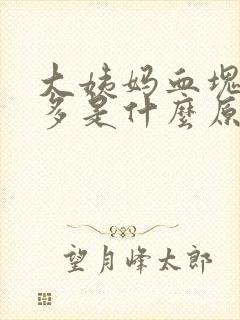 大姨妈血塊
多是什麼原
望月峰太郎